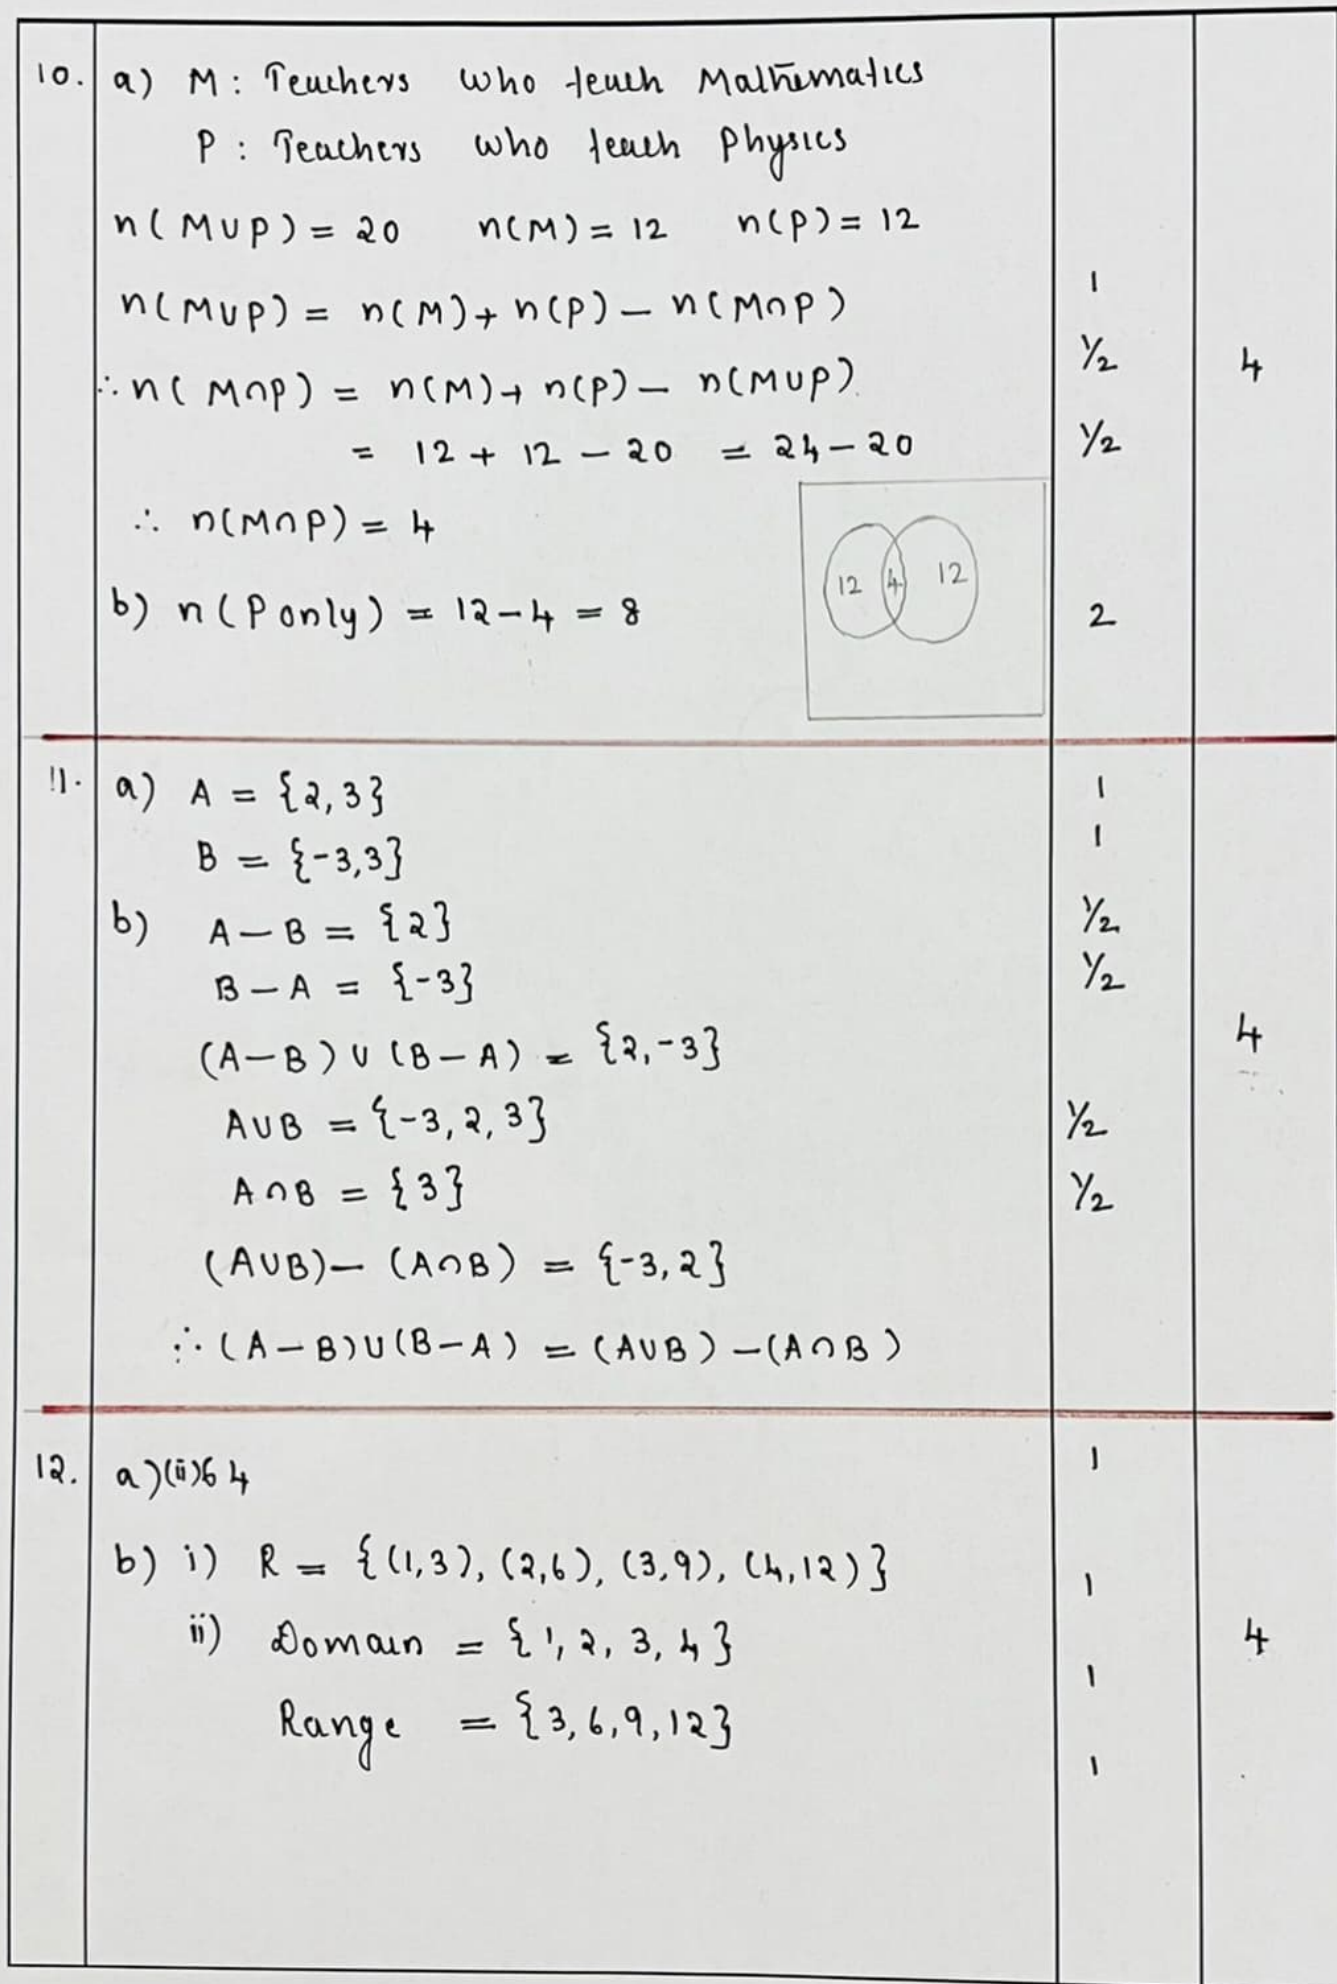 10. a) M : Teachers who teach Mathematics
P : Teachers who teach Physics
n(M∪P) = 20 n(M) = 12 n(P) = 12
n(M∪P) = n(M) + n(P) – n(M∩P) 1
∴ n(M∩P) = n(M) + n(P) – n(M∪P). ½ 4
= 12 + 12 – 20 = 24 – 20 ½
∴ n(M∩P) = 4
12 4 12
b) n(P only) = 12 – 4 = 8 2
11. a) A = {2, 3} 1
B = {-3, 3} 1
b) A – B = {2} ½
B – A = {-3} ½
(A – B) ∪ (B – A) = {2, -3} 4
A∪B = {-3, 2, 3} ½
A∩B = {3} ½
(A∪B) – (A∩B) = {-3, 2}
∴ (A – B)∪(B – A) = (A∪B) – (A∩B)
12. a)(ii) 64 1
b) i) R = {(1,3), (2,6), (3,9), (4,12)} 1
ii) Domain = {1, 2, 3, 4} 4
1
Range = {3, 6, 9, 12}
1